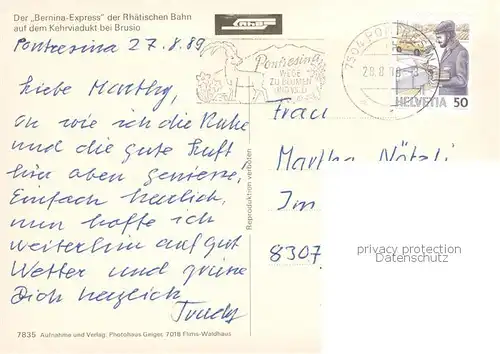 Der „Bernina-Express" der Rhätischen Bahn
auf dem Kehrviadukt bei Brusio
Pontresina 27.8.89
Liebe Marthy,
oh wie ich die Ruhe
und die gute Luft
hier oben geniesse.
Einfach herrlich,
nun hoffe ich
weiterhin auf gut
Wetter und grüsse
Dich herzlich
Trudy
7835 Aufnahme und Verlag: Photohaus Geiger, 7018 Flims-Waldhaus
Reproduktion verboten
Pontresina
WEGE
ZU BLUMEN
UND WILD
7504 PONTRES
28.8.
HELVETIA 50
Frau
Martha Nötzli
Im
8307
privacy protection
DELCAMPE